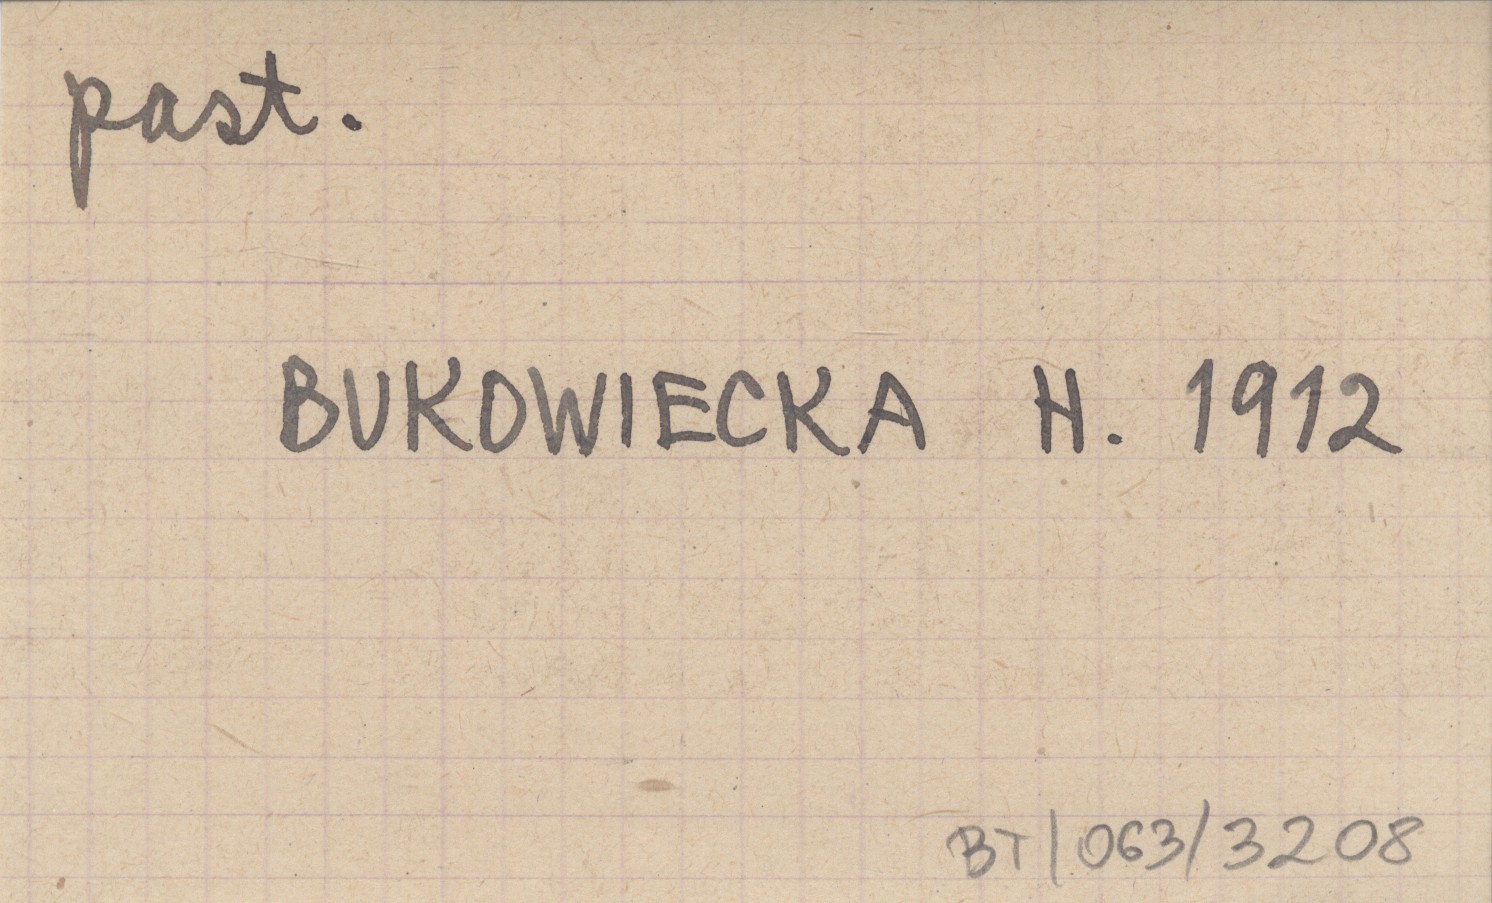 past.
BUKOWIECKA H. 1912
BT/063/3208